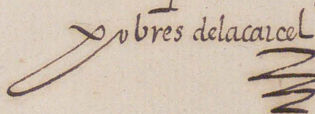 pobres delacarcel